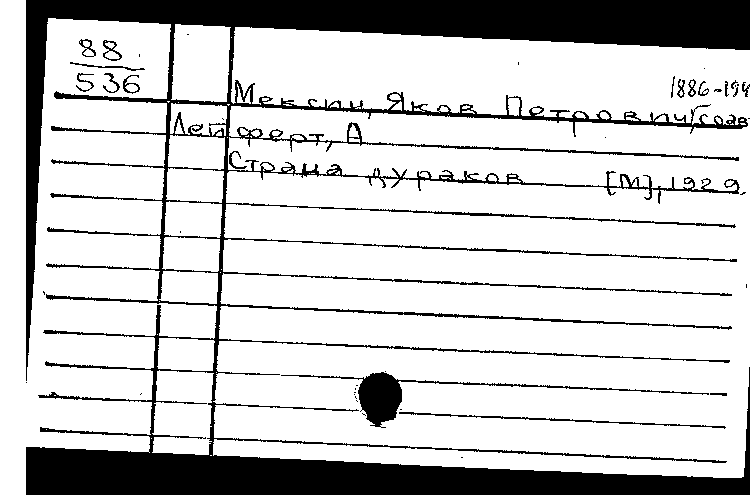 88
536
1886-194
Мексин, Яков Петрович/соав
Лейферт, А
Страна дураков [М], 1929